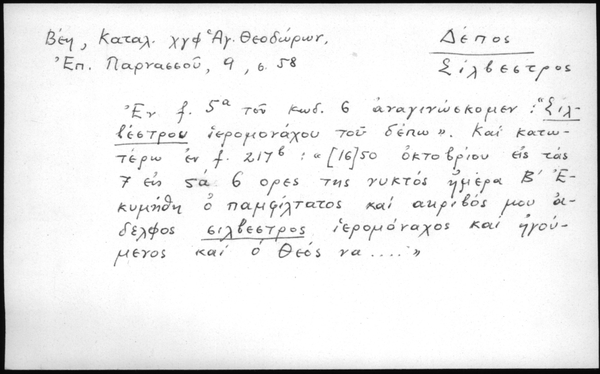 Βέη, Καταλ. χγφ Ἁγ. Θεοδώρων,
Ἐπ. Παρνασσοῦ, 9, σ. 58
Δέπος
Σίλβεστρος
Ἐν f. 5ᵃ τοῦ κωδ. 6 ἀναγινώσκομεν : "Σιλ-
βέστρου ἱερομονάχου τοῦ δέπω». Καὶ κατω-
τέρω ἐν f. 217ᵇ : «[16]50 ὀκτοβρίου εἰς τὰς
7 εἰς 6 ορες της νυκτός ἡμέρα Β' Ἐ-
κυμήθη ὁ παμφίλτατος καὶ ακριβός μου ἀ-
δελφος σιλβεστρος ἱερομόναχος καὶ ἡγού-
μενος καὶ ὁ Θεός να .... »